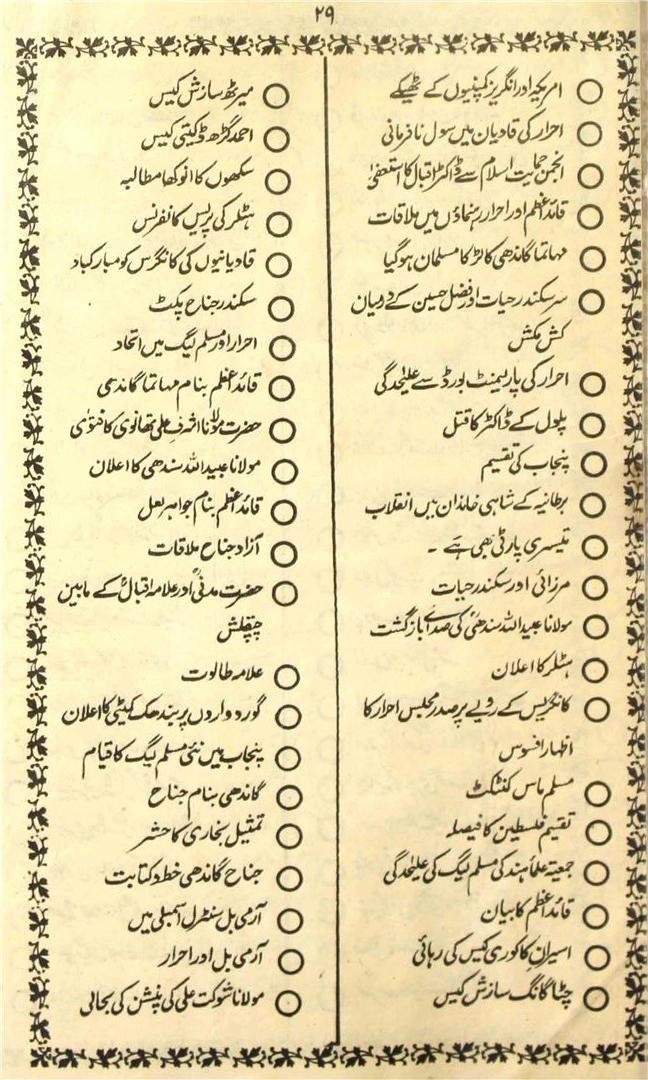 ۲۹
امریکہ اور انگریز کمپنیوں کے ٹھیکے
احرار کی قادیان میں سول نافرمانی
انجمن حمایت اسلام سے ڈاکٹر اقبال کا استعفیٰ
قائد اعظم اور احرار رہنماؤں میں ملاقات
مہاتما گاندھی کا لڑکا مسلمان ہوگیا
سر سکندر حیات اور فضل حسین کے درمیان
کش مکش
احرار کی پارلیمنٹ بورڈ سے علیٰحدگی
پلول کے ڈاکٹر کا قتل
پنجاب کی تقسیم
برطانیہ کے شاہی خاندان میں انقلاب
تیسری پارٹی بھی ہے ۔
مرزائی اور سکندر حیات
مولانا عبید اللہ سندھیؒ کی صدائے بازگشت
ہٹلر کا اعلان
کانگریس کے رویے پر صدر مجلس احرار کا
اظہار افسوس
مسلم ماس کنٹکٹ
تقسیم فلسطین کا فیصلہ
جمعیۃ علماٴ ہند کی مسلم لیگ کی علیٰحدگی
قائد اعظم کا بیان
اسیران کاکوری کیس کی رہائی
چٹاگانگ سازش کیس
میرٹھ سازش کیس
احمد گڑھ ڈکیتی کیس
سکھوں کا انوکھا مطالبہ
ہٹلر کی پریس کانفرنس
قادیانیوں کی کانگرس کو مبارکباد
سکندر جناح پکٹ
احرار اور مسلم لیگ میں اتحاد
قائد اعظم بنام مہاتما گاندھی
حضرت مولانا اشرف علی تھانوی کا فتویٰ
مولانا عبید اللہ سندھی کا اعلان
قائد اعظم بنام جواہر لعل
آزاد جناح ملاقات
حضرت مدنیؒ اور علامہ اقبالؒ کے مابین
چپقلش
علامہ طالوت
گوردواروں پر بندھک کمیٹی کا اعلان
پنجاب میں نئی مسلم لیگ کا قیام
گاندھی بنام جناح
تمثیل بخاری کا حشر
جناح گاندھی خط و کتابت
آرمی بل سنٹرل اسمبلی میں
آرمی بل اور احرار
مولانا شوکت علی کی پنشن کی بحالی